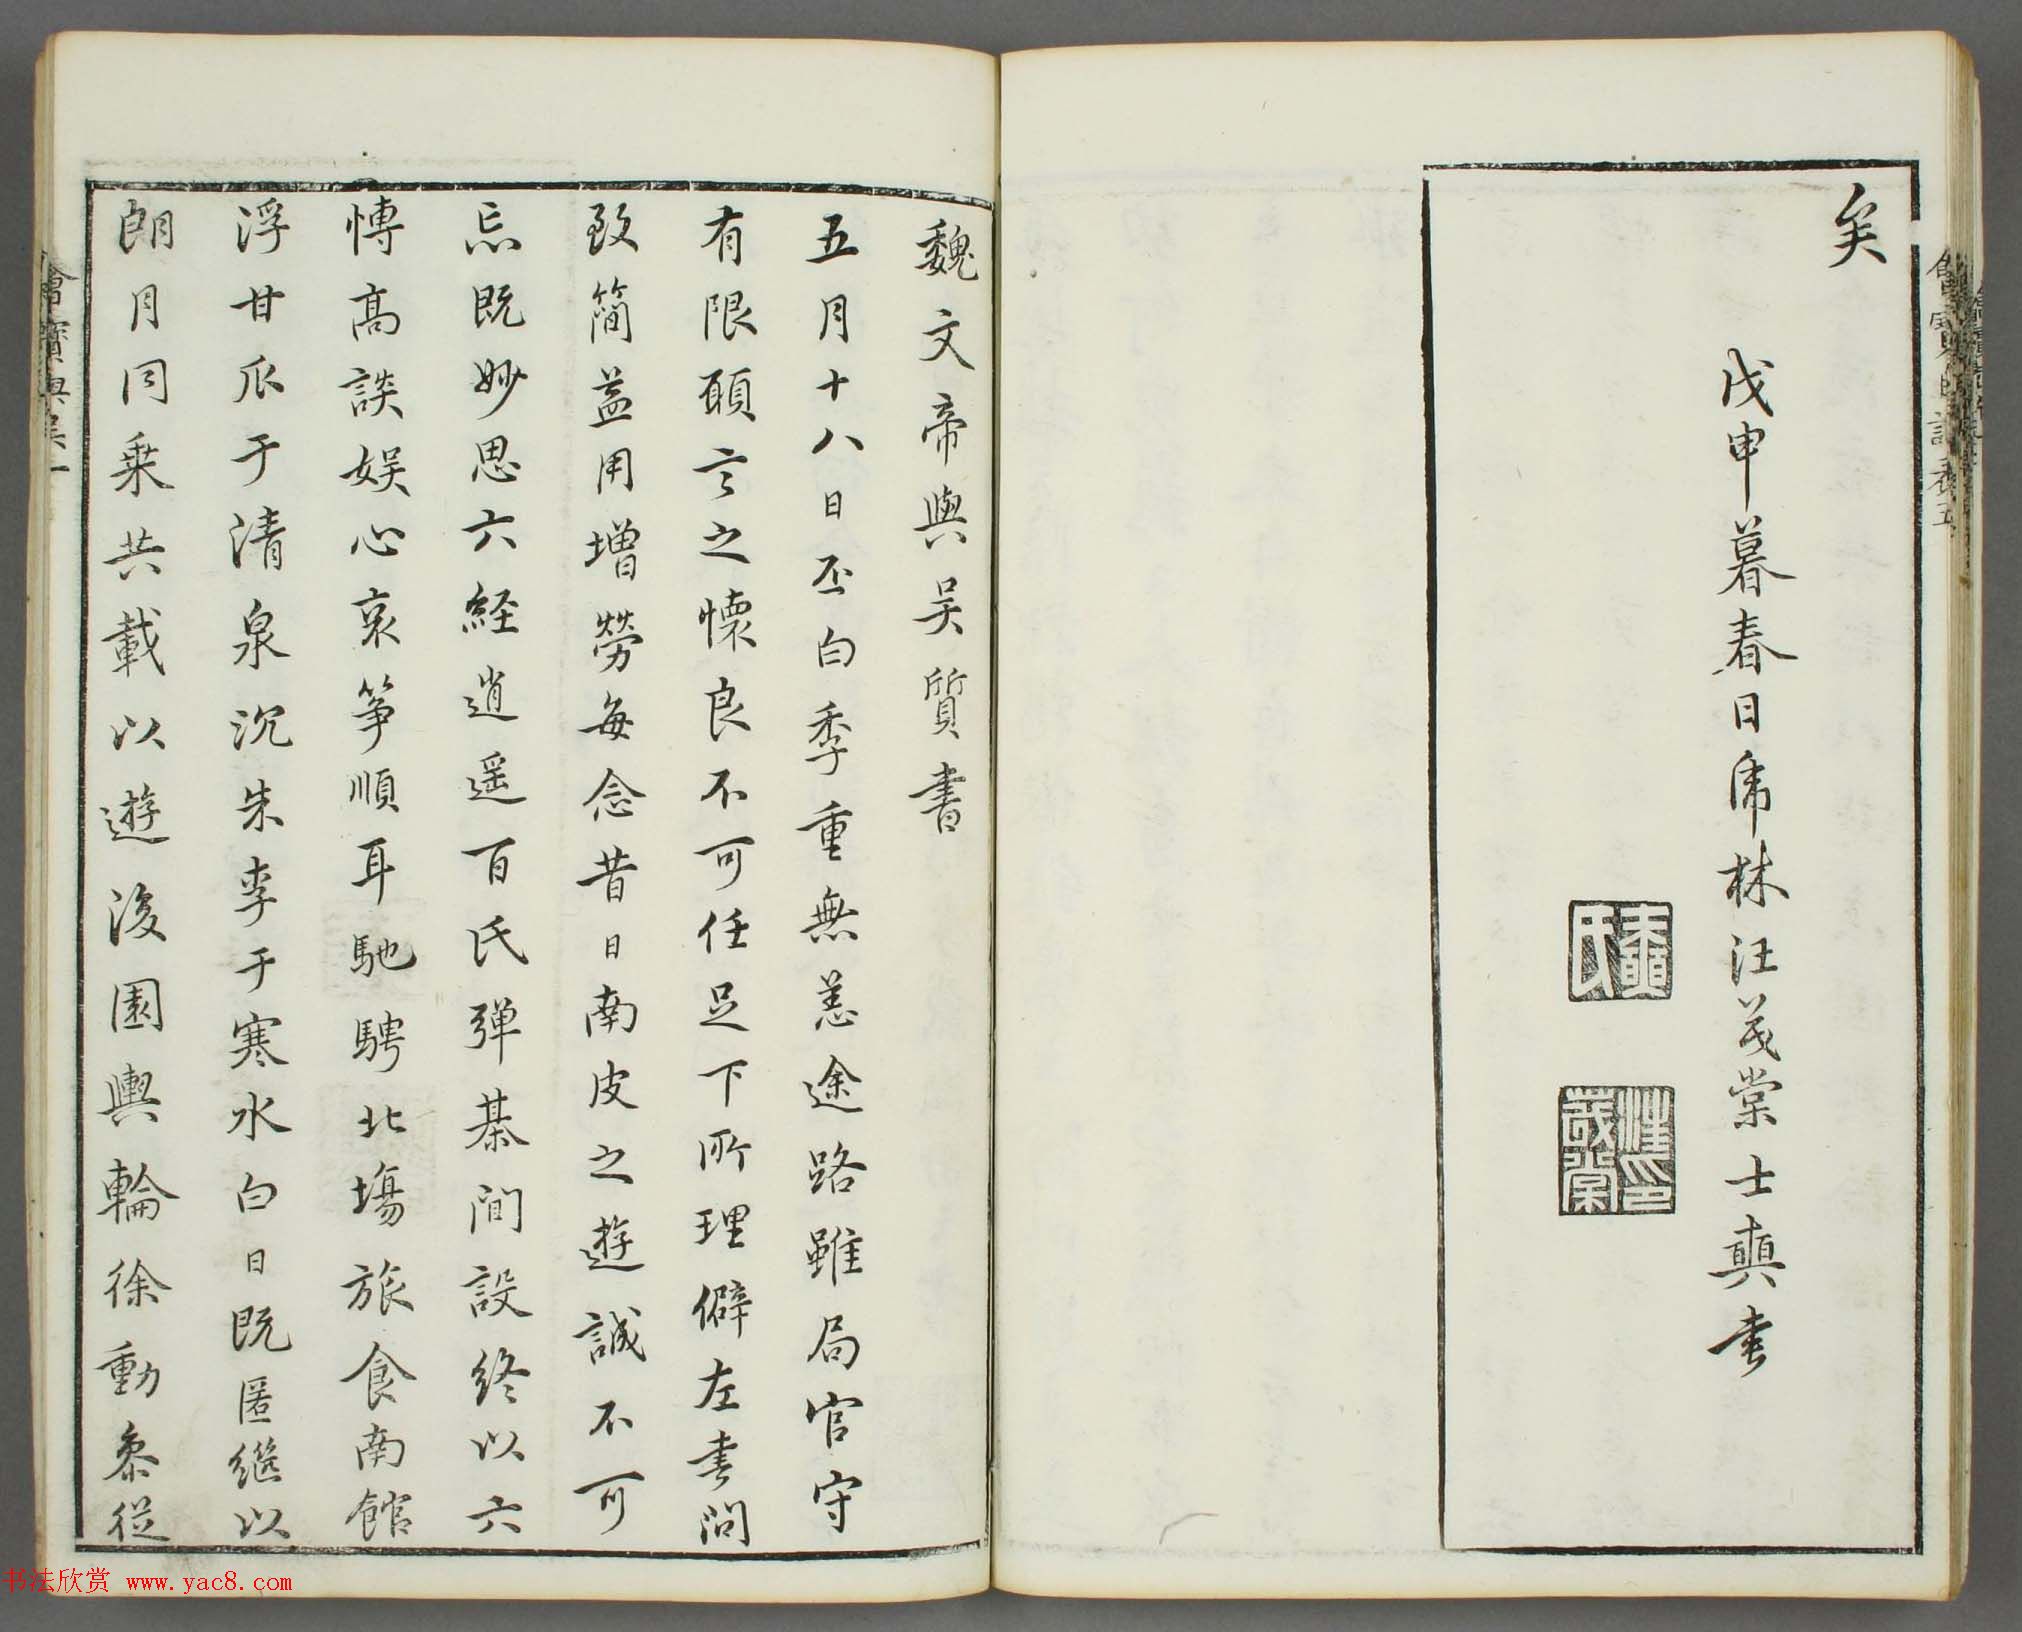 矣
戊申暮春日虎林汪茂棠士真書
魏文帝與吴質書
五月十八日丕白季重無恙途路雖局官守
有限願言之懷良不可任足下所理僻左書問
致簡益用增勞每念昔日南皮之遊誠不可
忘既妙思六經逍遥百氏弾棊間設終以六
慱髙談娱心哀筝順耳馳騁北塲旅食南館
浮甘瓜于清泉沉朱李于寒水白日既匿継以
朗月同乗共載以遊後園輿輪徐動参從
书法欣赏 www.yac8.com